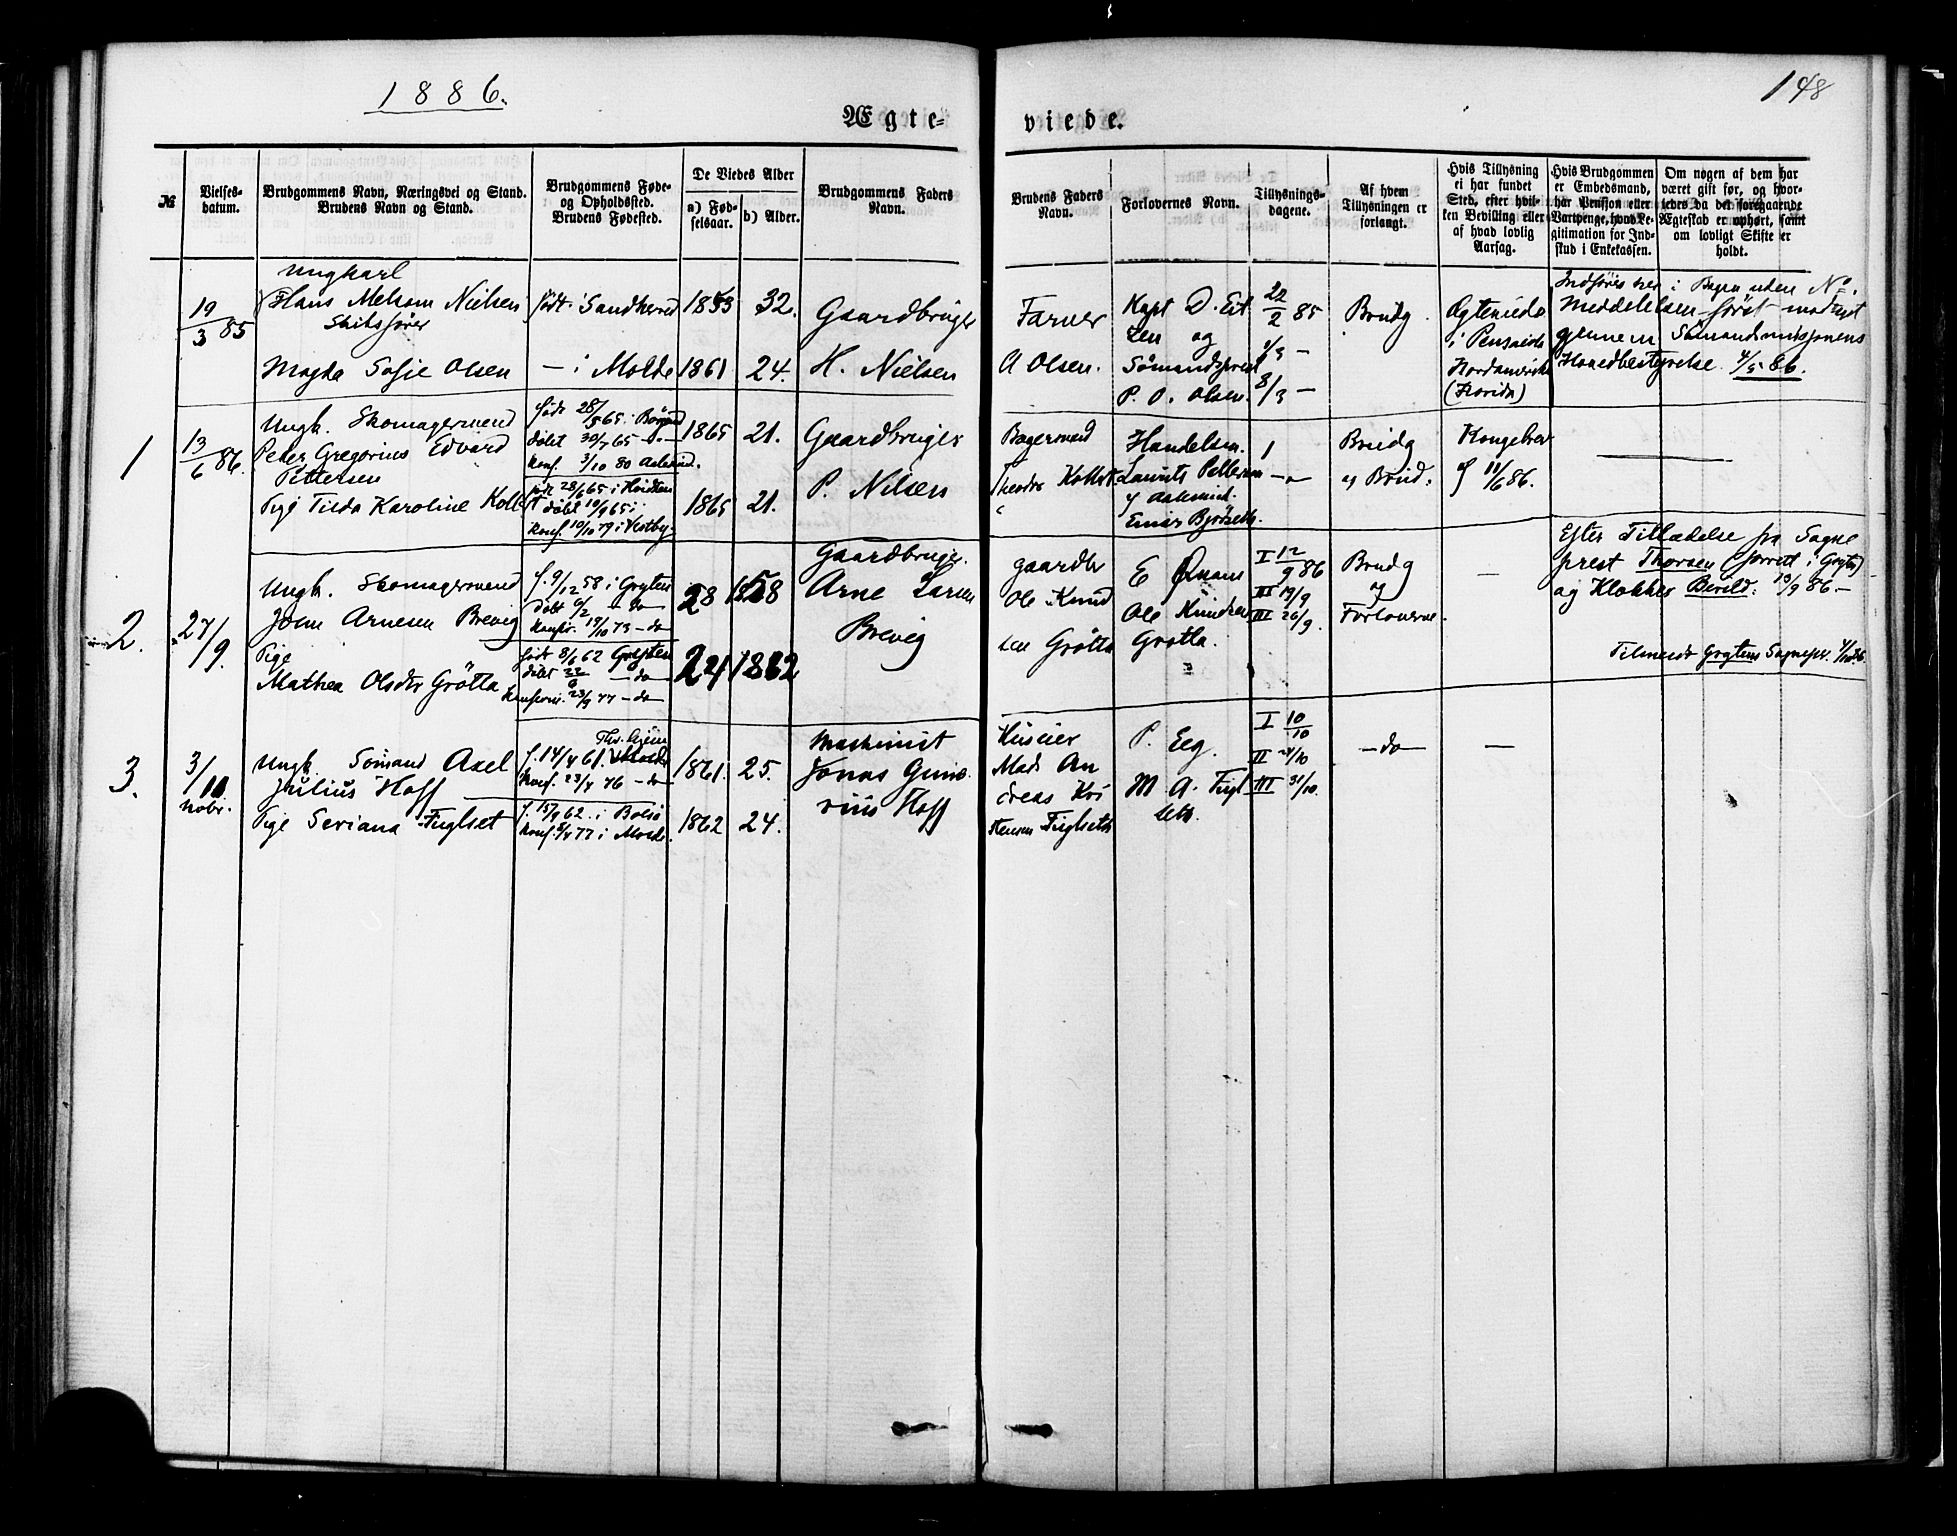 1886.
148
Ægte-
viede.
№
Vielses-
datum.
Brudgommens Navn, Næringsvei og Stand.
Brudens Navn og Stand.
Brudgommens Føde-
og Opholdssted.
Brudens Fødested.
De Viedes Alder
a) Fød-
selsaar.
b) Alder.
Brudgommens Faders
Navn.
Brudens Faders
Navn.
Forlovernes Navn.
Tillysnings-
dagene.
Af hvem
Tillysningen er
forlangt.
Hvis Tillysning
ei har fundet
Sted, efter hvil-
ken Bevilling eller
af hvad lovlig
Aarsag.
Hvis Brudgommen
er Embedsmand,
har Pension eller
Vartpenge, hvad Le-
gitimation for Ind-
skud i Enkekassen.
Om nogen af dem har
været gift før, og hvor-
ledes da det foregaaende
Ægteskab er ophørt, samt
om lovligt Skifte er
holdt.
19/3 85
Ungkarl
Hans Melsom Nielsen
Skibsfører
født i Sandherred
1853
32.
Gaardbruger
H. Nielsen
Magda Sofie Olsen
— i Molde
1861
24.
Farver
A Olsen.
Kapt D. Eit
zen og
Sømandsprest
P. O. Olsen.
22/2 85
1/3 —
8/3 —
Brudg.
Ægteviede
i Pensacola
Nordamerika
(Florida)
Indføres her i Bogen uden No.
Meddelelsen først modtaget
gjennem Sømandsmissionens
Hovedbestyrelse 4/5 86.
1
13/6 86.
Ungk. Skomagersvend
Peter Gregorius Edvard
Pettersen
født 28/5 65 i Borgund
døbt 30/7 65 — do —
konf. 3/10 80 Aalesund.
1865
21.
Gaardbruger
P. Nilsen
Pige Tilda Karoline
født 28/6 65 i Hvidsten
døbt 10/9 65 i
konf. 10/10 79 i Vestby.
1865
21.
Bagersvend
Theodor
Handelsm.
Laurits Pettersen
af Aalesund.
Einar Bjørseth.
Brudg
og Brud.
Kongebrev
af 11/6 86.
2.
27/9.
Ungk. Skomagersvend
John Arnesen Brevig
f. 9/12 58 i Grytten
døbt 6/2 — do
konfir. 19/10 73 — do
28
1858
Gaardbruger.
Arne Larsen
Brevig
Pige
Mathea Olsdtr Grøtta
født 8/6 62 Grytten
døbt 22/6 — do
Konfirm. 23/9 77 — do —
24
1862
gaardbr
Ole Knud
sen Grøtta
E Øwam
Ole Knudsen
Grøtta.
I 12/9 86
III 19/9
III 26/9.
Brudg
og
Forloverne.
—
Efter Tilladelse fra Sogne
prest Thorsen (forrett i Grytten)
og Klokker Birkeld: 13/9 86.—
Tilmeldt Gryttens Sognepr. 4/10 86.
3.
3/11
Nobr.
Ungk Sømand Axel
Julius Hoff
f. 14/4 61.
konf. 23/4 76 — do —
1861.
25.
Maskinist
Jonas Guno
rius Hoff
Pige Seriana Fuglset
f. 15/9 62 i Bolsø
konf. 8/4 77 i Molde.
1862
24.
Huseier
Mads An
dreas Kri
stensen Fuglseth
P. Eeg.
M. A. Fugl
seth.
I 10/10
II 24/10
III 31/10.
—do—
—